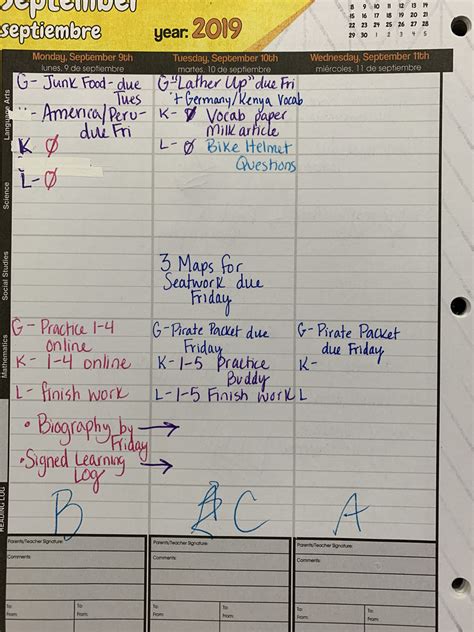 September
septiembre
year: 2019
8 9 10 11 12 13 14
15 16 17 18 19 20 21
22 23 24 25 26 27 28
29 30
Monday, September 9th
lunes, 9 de septiembre
Tuesday, September 10th
martes, 10 de septiembre
Wednesday, September 11th
miércoles, 11 de septiembre
Language Arts
G- Junk Food- due
Tues
"- America/Peru-
due Fri
K Ø
L- Ø
G-"Lather Up" due Fri
"+ Germany/Kenya Vocab
K- Ø Vocab paper
Milk article
L- Ø Bike Helmet
Questions
Science
Social Studies
3 Maps for
Seatwork due
Friday
Mathematics
G- Practice 1-4
online
K- 1-4 online
L- finish work
• Biography by →
Friday
• Signed Learning →
Log
G-Pirate Packet due
Friday
K- 1-5 Practice
Buddy
L- 1-5 Finish work
G- Pirate Packet
due Friday
K-
L
READING LOG
B
C
A
Parents/Teacher Signature:
Comments:
To:
From:
To:
From:
Parents/Teacher Signature:
Comments:
To:
From:
To:
From:
Parents/Teacher Signature:
Comments:
To:
From:
To:
From: